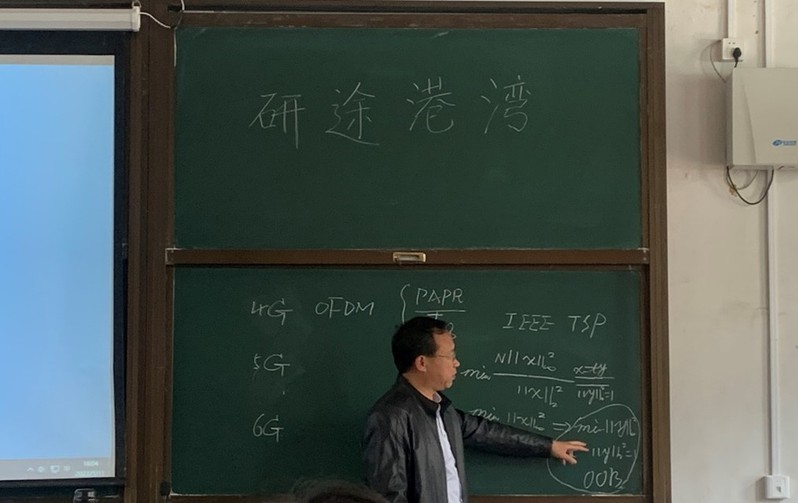 研途港湾
4G OFDM { PAPR
IEEE TSP
5G
min N||x||²∞ / ||x||²₂ x=ty / ||y||²₂=1
6G
min ||x||²∞ ⇒ min ||y||
||y||²₂=1
OOB